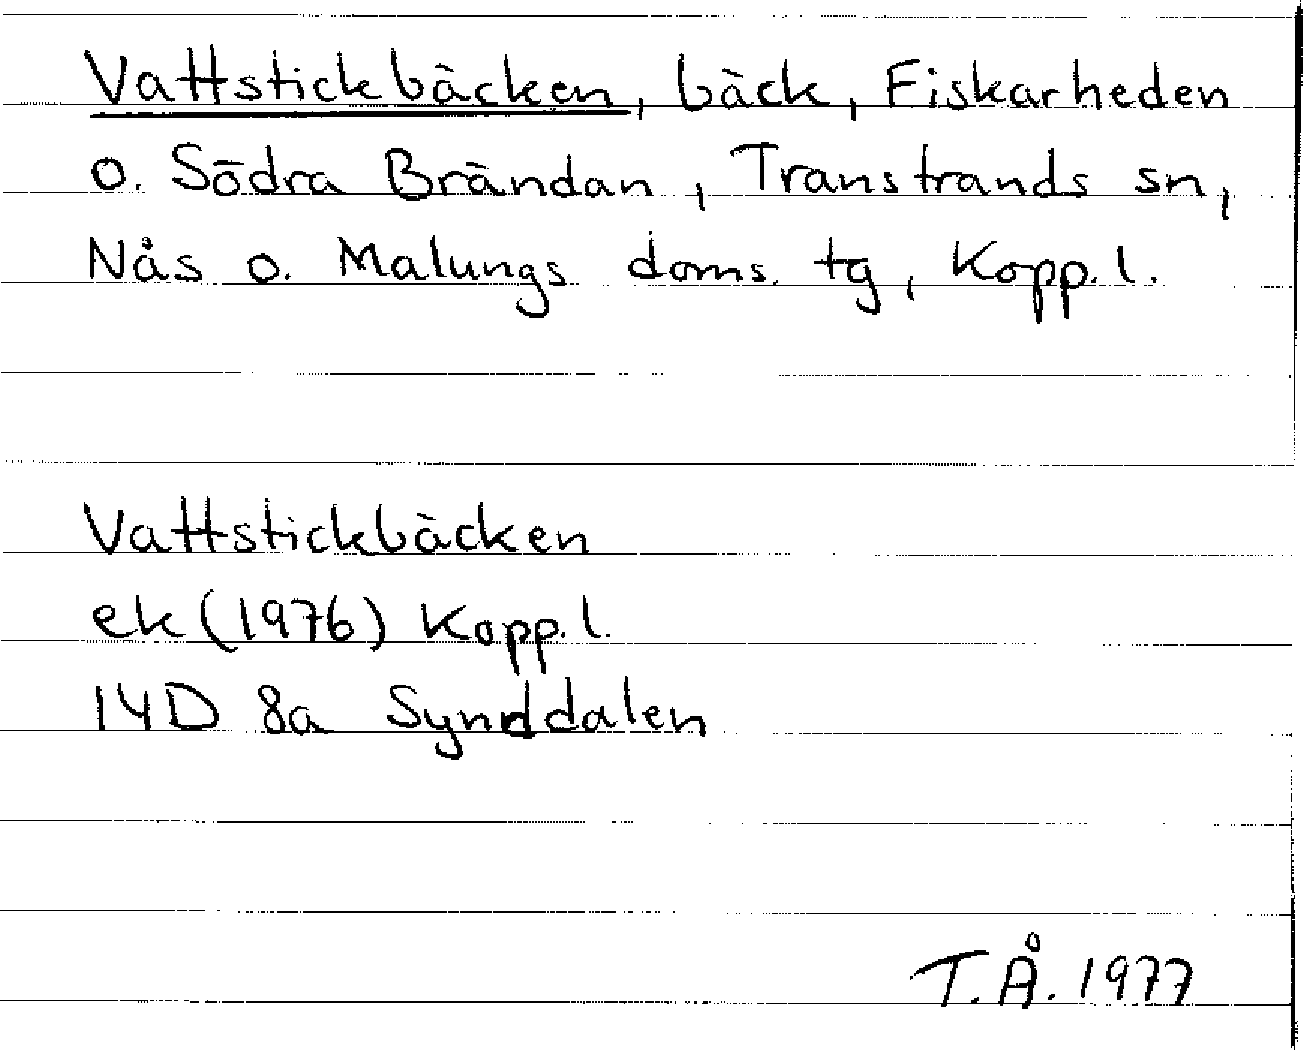 Vattstickbäcken, bäck, Fiskarheden
o. Södra Brändan, Transtrands sn,
Nås o. Malungs doms. tg, Kopp. l.
Vattstickbäcken
ek (1976) Kopp. l.
14D 8a Synddalen
T.Å. 1977